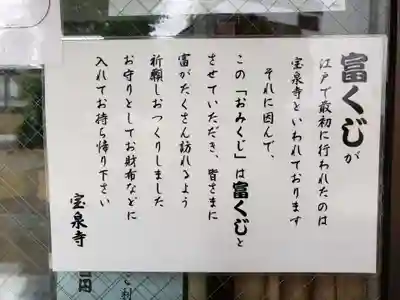 富くじが
江戸で最初に行われたのは
宝泉寺といわれております
それに因んで、
この「おみくじ」は富くじと
させていただき、皆さまに
富がたくさん訪れるよう
祈願しおつくりしました
お守りとしてお財布などに
入れてお持ち帰り下さい
宝泉寺
ご利
円